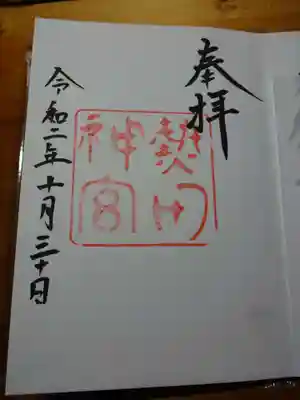 奉拝
熱田
神宮
令和二年十月三十日